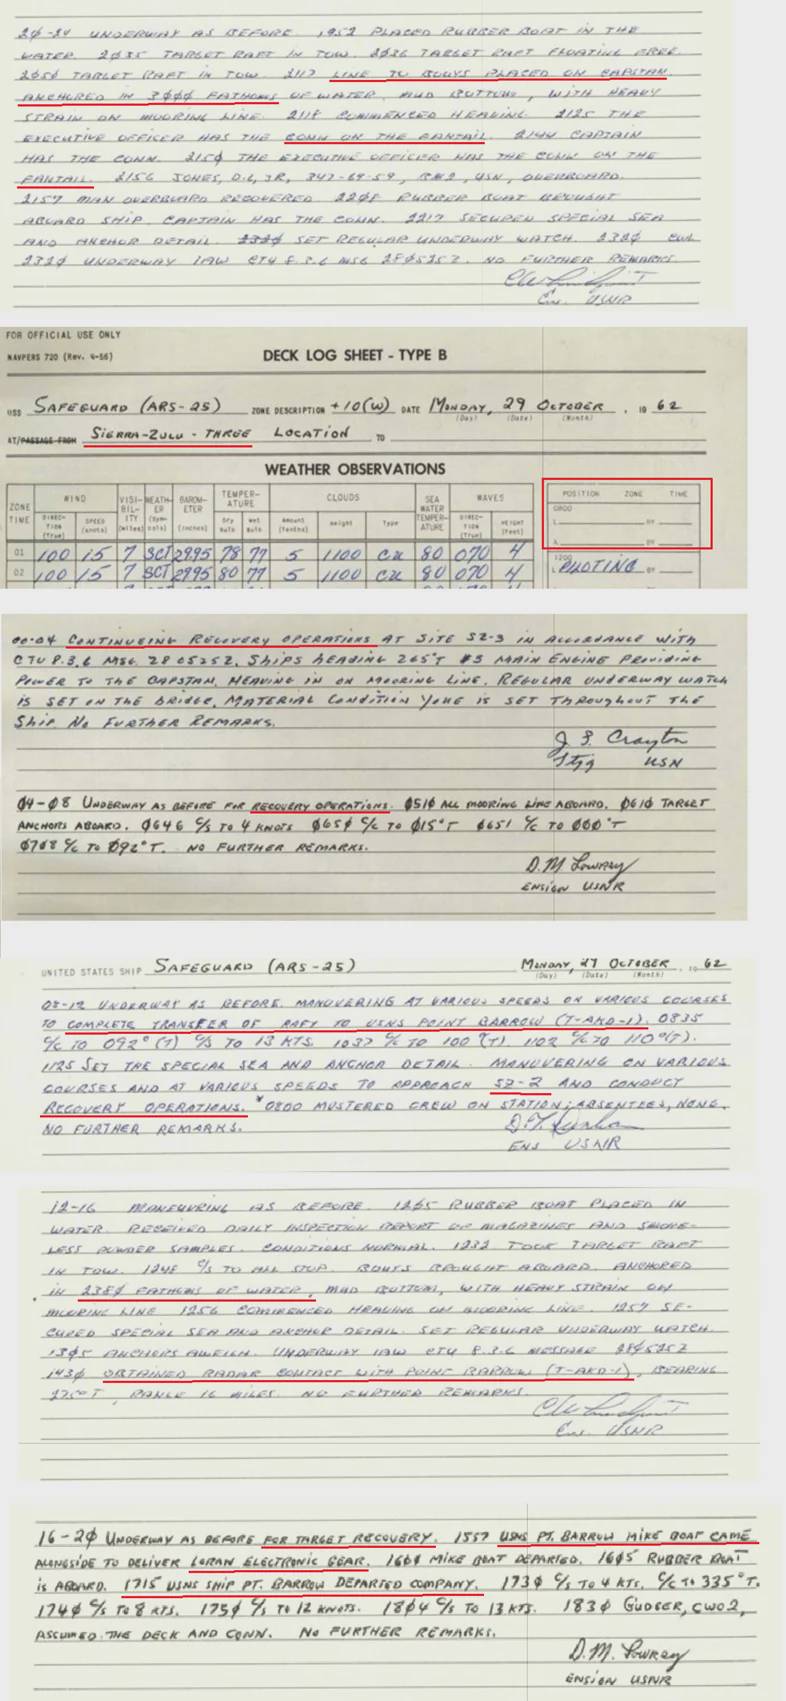 2Ø-24 UNDERWAY AS BEFORE. 1952 PLACED RUBBER BOAT IN THE
WATER. 2Ø35 TARGET RAFT IN TOW. 2Ø36 TARGET RAFT FLOATING FREE
2Ø5Ø TARGET RAFT IN TOW. 2117 LINE TO BOUYS PLACED ON CAPSTAN
ANCHORED IN 3ØØØ FATHOMS OF WATER, MUD BOTTOM, WITH HEAVY
STRAIN ON MOORING LINE. 2118 COMMENCED HEAVING. 2125 THE
EXECUTIVE OFFICER HAS THE CONN ON THE FANTAIL. 2144 CAPTAIN
HAS THE CONN. 215Ø THE EXECUTIVE OFFICER HAS THE CONN ON THE
FANTAIL. 2156 JONES, D.L, JR, USN, OVERBOARD.
2157 MAN OVERBOARD RECOVERED 22Ø8 RUBBER BOAT BROUGHT
ABOARD SHIP. CAPTAIN HAS THE CONN. 2217 SECURED SPECIAL SEA
AND ANCHOR DETAIL. 232Ø SET REGULAR UNDERWAY WATCH. 232Ø CWL
232Ø UNDERWAY IAW CTU 8.3.6 MSG 28Ø525Z. NO FURTHER REMARKS.
USNR
FOR OFFICIAL USE ONLY
NAVPERS 720 (Rev. 4-56)
DECK LOG SHEET - TYPE B
USS SAFEGUARD (ARS-25) ZONE DESCRIPTION +10(W) DATE MONDAY, 29 OCTOBER, 19 62
(Day) (Date) (Month)
AT/PASSAGE FROM SIERRA-ZULU - THREE LOCATION TO
WEATHER OBSERVATIONS
ZONE TIME WIND DIRECTION (True) SPEED (knots) VISIBILITY (miles) WEATHER (Symbols) BAROMETER (inches) TEMPERATURE Dry bulb Wet bulb CLOUDS Amount (tenths) Height Type SEA WATER TEMPERATURE WAVES DIRECTION (True) HEIGHT (feet) POSITION ZONE TIME
0800
L BY
λ BY
01 100 15 7 SCT 2995 78 77 5 1100 CU 80 070 4 1200
02 100 15 7 SCT 2995 80 77 5 1100 CU 80 070 4 L PILOTING BY
00-04 CONTINUEING RECOVERY OPERATIONS AT SITE SZ-3 IN ACCORDANCE WITH
CTU 8.3.6 MSG. 28 0525Z. SHIPS HEADING 265°T #3 MAIN ENGINE PROVIDING
POWER TO THE CAPSTAN, HEAVING IN ON MOORING LINE. REGULAR UNDERWAY WATCH
IS SET ON THE BRIDGE, MATERIAL CONDITION YOKE IS SET THROUGHOUT THE
SHIP. NO FURTHER REMARKS.
J. S. Crayton
Ltjg USN
Ø4-Ø8 UNDERWAY AS BEFORE FOR RECOVERY OPERATIONS. Ø51Ø ALL MOORING LINE ABOARD. Ø61Ø TARGET
ANCHORS ABOARD. Ø646 C/S TO 4 KNOTS Ø65Ø C/C TO Ø15°T Ø651 C/C TO ØØØ°T
Ø7Ø8 C/C TO Ø92°T. NO FURTHER REMARKS.
D.M Lowrey
ENSIGN USNR
UNITED STATES SHIP SAFEGUARD (ARS-25) MONDAY, 29 OCTOBER, 19 62
(Day) (Date) (Month)
08-12 UNDERWAY AS BEFORE. MANUVERING AT VARIOUS SPEEDS ON VARIOUS COURSES
TO COMPLETE TRANSFER OF RAFT TO USNS POINT BARROW (T-AKD-1). 0835
C/C TO 092° (T) C/S TO 13 KTS. 1037 C/C TO 100° (T) 1102 C/C TO 110°(T).
1125 SET THE SPECIAL SEA AND ANCHOR DETAIL. MANUVERING ON VARIOUS
COURSES AND AT VARIOUS SPEEDS TO APPROACH SZ-2 AND CONDUCT
RECOVERY OPERATIONS. *0800 MUSTERED CREW ON STATION; ABSENTEES, NONE.
NO FURTHER REMARKS.
ENS USNR
12-16 MANEUVRING AS BEFORE. 12Ø5 RUBBER BOAT PLACED IN
WATER. RECEIVED DAILY INSPECTION REPORT OF MAGAZINES AND SMOKE-
LESS POWDER SAMPLES. CONDITIONS NORMAL. 1232 TOOK TARGET RAFT
IN TOW. 1248 C/S TO ALL STOP. BOUYS BROUGHT ABOARD. ANCHORED
IN 238Ø FATHOMS OF WATER, MUD BOTTOM, WITH HEAVY STRAIN ON
MOORING LINE 1256 COMMENCED HEAVING ON MOORING LINE. 1257 SE-
CURED SPECIAL SEA AND ANCHOR DETAIL. SET REGULAR UNDERWAY WATCH.
13Ø5 ANCHORS AWEIGH. UNDERWAY IAW CTU 8.3.6 MESSAGE 28Ø525Z
143Ø OBTAINED RADAR CONTACT WITH POINT BARROW (T-AKD-1), BEARING
275°T, RANGE 16 MILES. NO FURTHER REMARKS.
USNR
16-2Ø UNDERWAY AS BEFORE FOR TARGET RECOVERY. 1557 USNS PT. BARROW MIKE BOAT CAME
ALONGSIDE TO DELIVER LORAN ELECTRONIC GEAR. 16Ø4 MIKE BOAT DEPARTED. 16Ø5 RUBBER BOAT
IS ABOARD. 1715 USNS SHIP PT. BARROW DEPARTED COMPANY. 173Ø C/S TO 4 KTS. C/C TO 335°T.
174Ø C/S TO 8 KTS. 175Ø C/S TO 12 KNOTS. 18Ø4 C/S TO 13 KTS. 183Ø GUDGER, CWO2,
ASSUMED THE DECK AND CONN. NO FURTHER REMARKS.
D.M. Lowrey
ENSIGN USNR